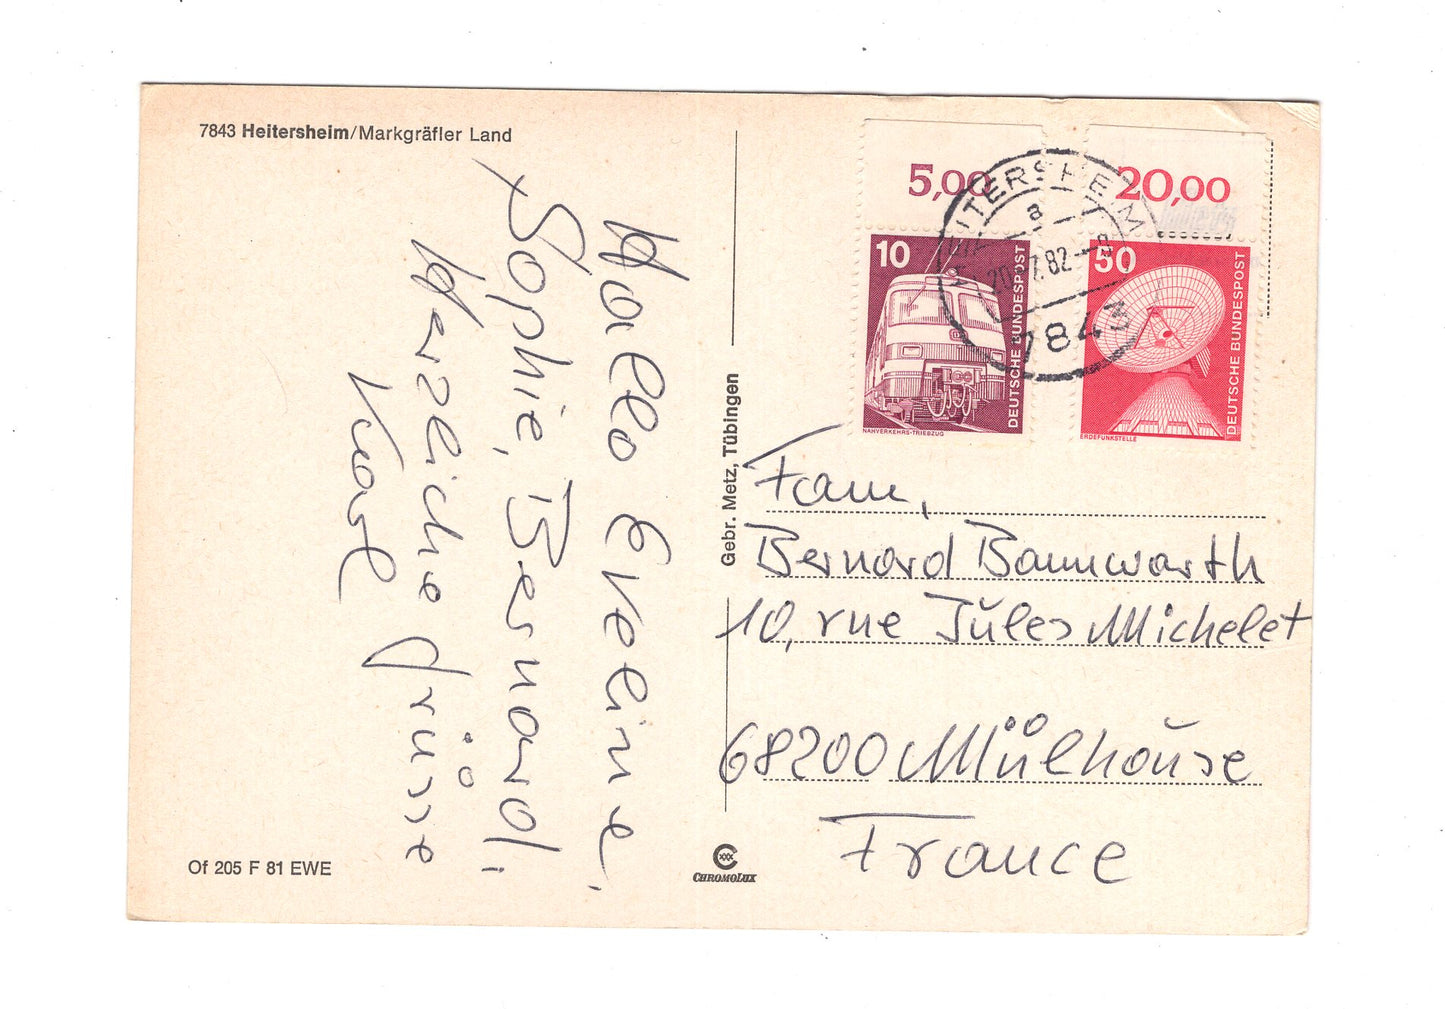 7843 Heitersheim/Markgräfler Land
Hallo Eveline,
Sophie, Bernard,
Herzliche Grüsse
Karl
Of 205 F 81 EWE
Gebr. Metz, Tübingen
CHROMOLUX
5,00
20,00
10
DEUTSCHE BUNDESPOST
NAHVERKEHRS-TRIEBZUG
50
DEUTSCHE BUNDESPOST
ERDEFUNKSTELLE
HEITERSHEIM
a
20.-7.82
7843
Fam.
Bernard Bannwarth
10, rue Jules Michelet
68200 Mülhouse
France